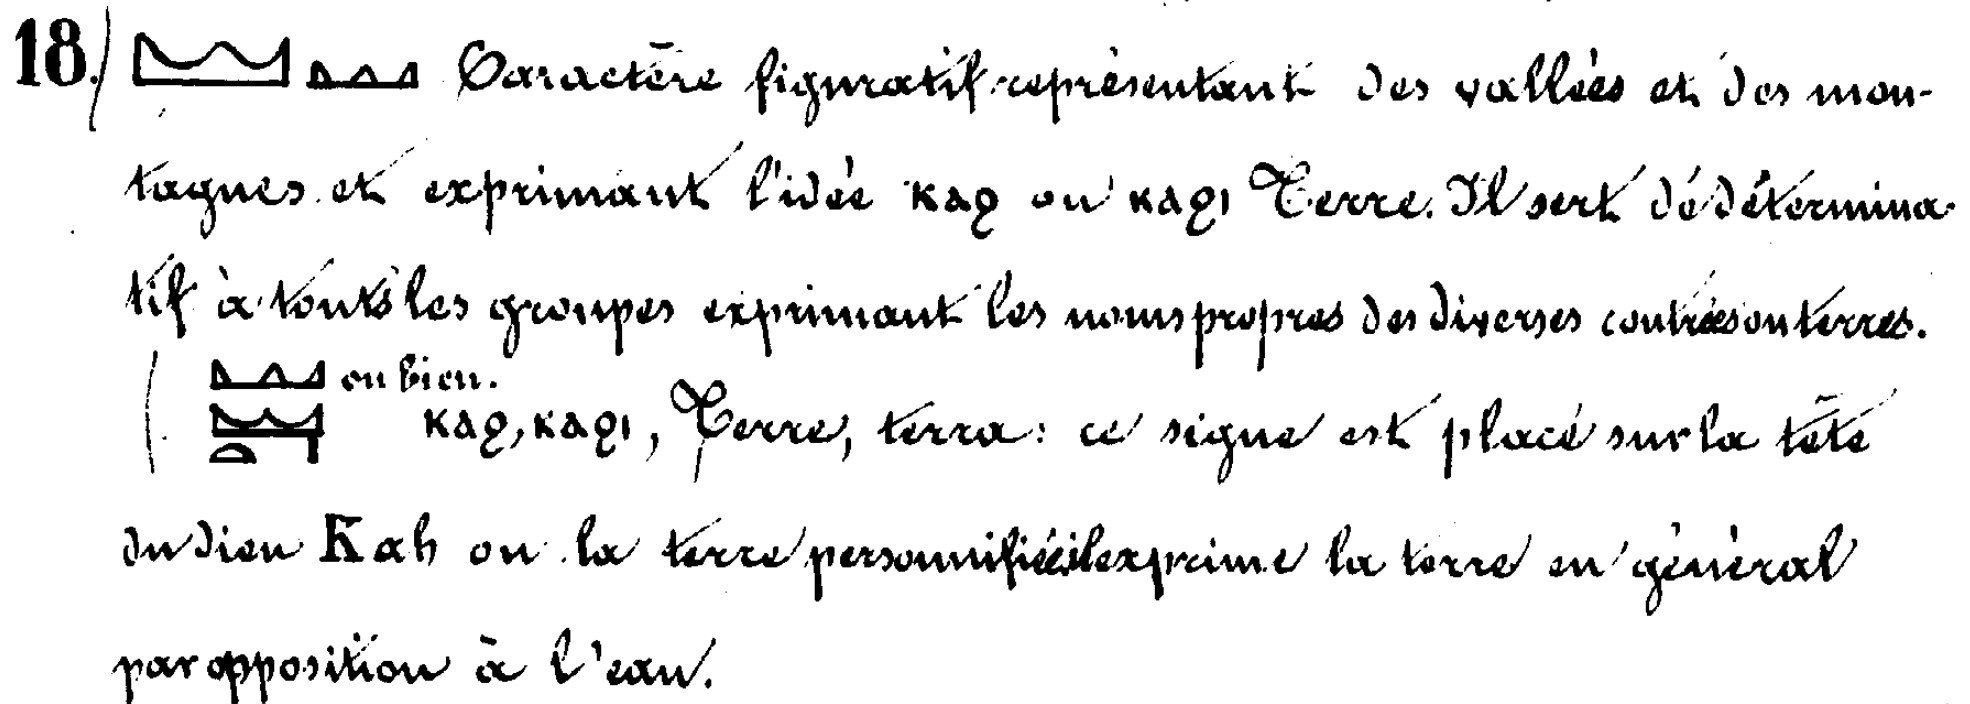 18. 𓈉 𓈉 Caractère figuratif représentant des vallées et des mon-
tagnes et exprimant l'idée ⲕⲁϩ ou ⲕⲁϩⲓ Terre. Il sert dé détermina-
tif à touts les groupes exprimant les noms propres des diverses contrées ou terres.
ou bien.
ⲕⲁϩ, ⲕⲁϩⲓ, Terre, terra: ce signe est placé sur la tête
du dieu Kah ou la terre personnifiée il exprime la terre en général
par opposition à l'eau.